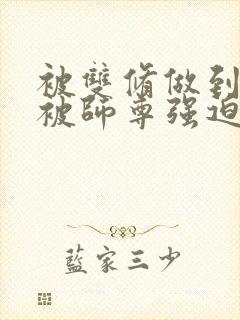 被雙脩做到
被師尊强迫
藍家三少